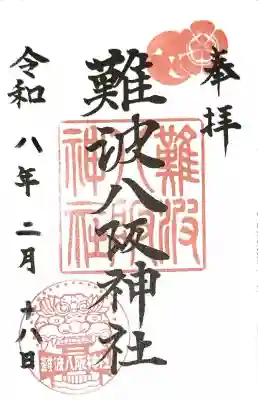 奉拝
難波八阪神社
難波八阪神社
令和八年二月十八日
難波八阪神社